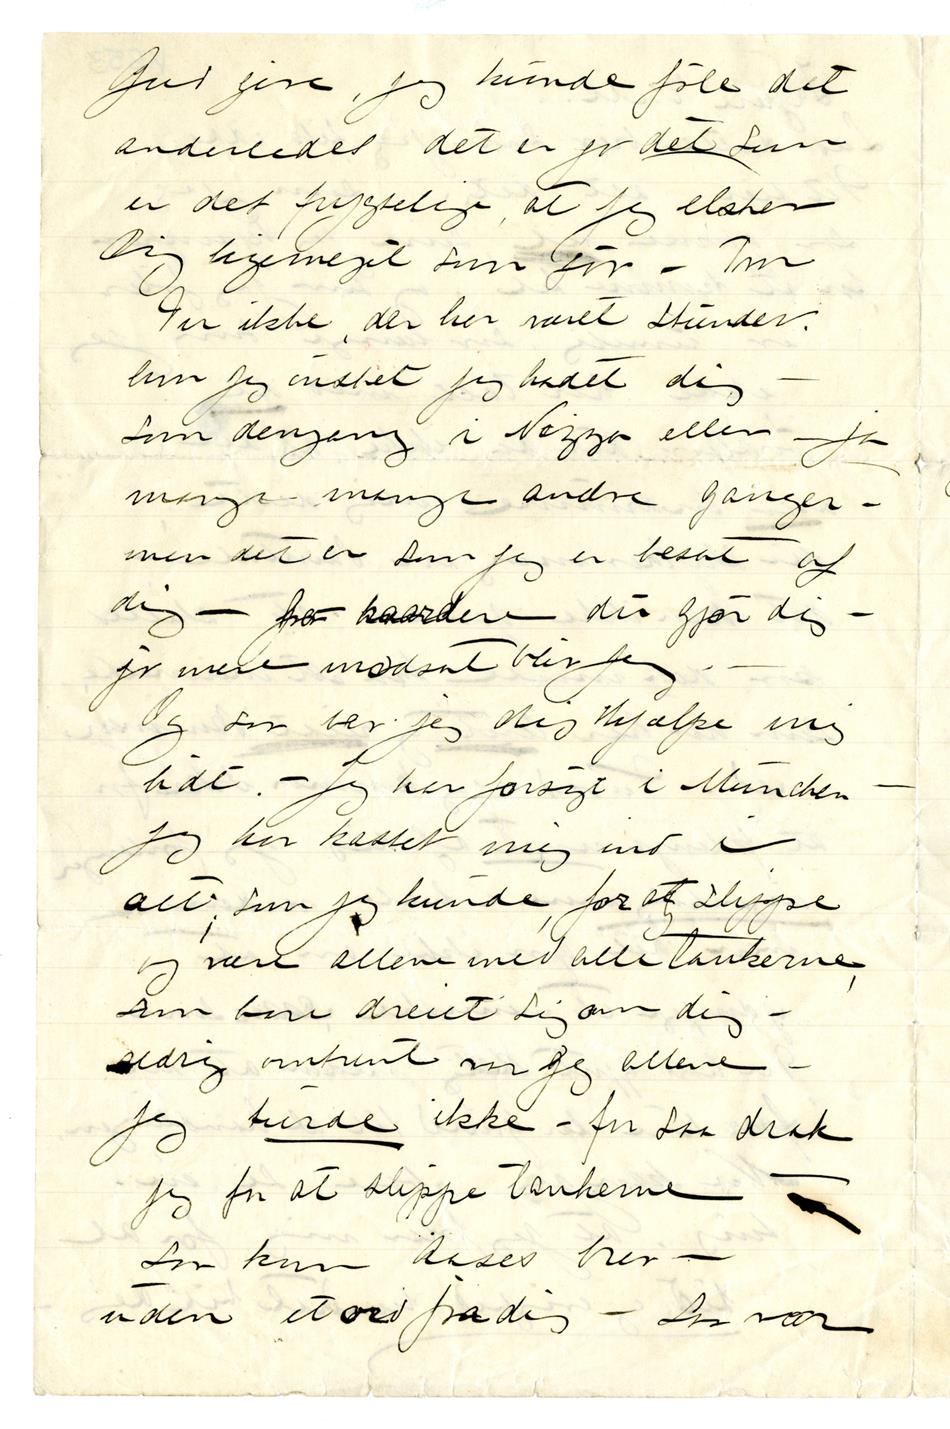 Gud give, jeg kunde føle det
anderledes det er jo det som
er det frygtelige, at jeg elsker
Dig ligemeget som før – Tror
Du ikke, der har været stunder,
hvor jeg ønsket jeg hadet dig –
som dengang i Nizza eller – ja
mange – mange andre ganger –
men det er som jeg er besat af
dig – jo haardere du gjør dig –
jo mere modsat blir jeg. –
Og saa ber jeg dig hjælpe mig
lidt. – Jeg har forsøgt i München –
jeg har kastet mig ind i
alt, som jeg kunde, for at slippe
og være allene med alle tankerne,
som bare dreiet sig om dig –
aldrig omtrent var jeg allene –
jeg turde ikke – for saa drak
jeg for at slippe tankerne –
saa kom Aases brev –
uden et ord fra dig – Saa var